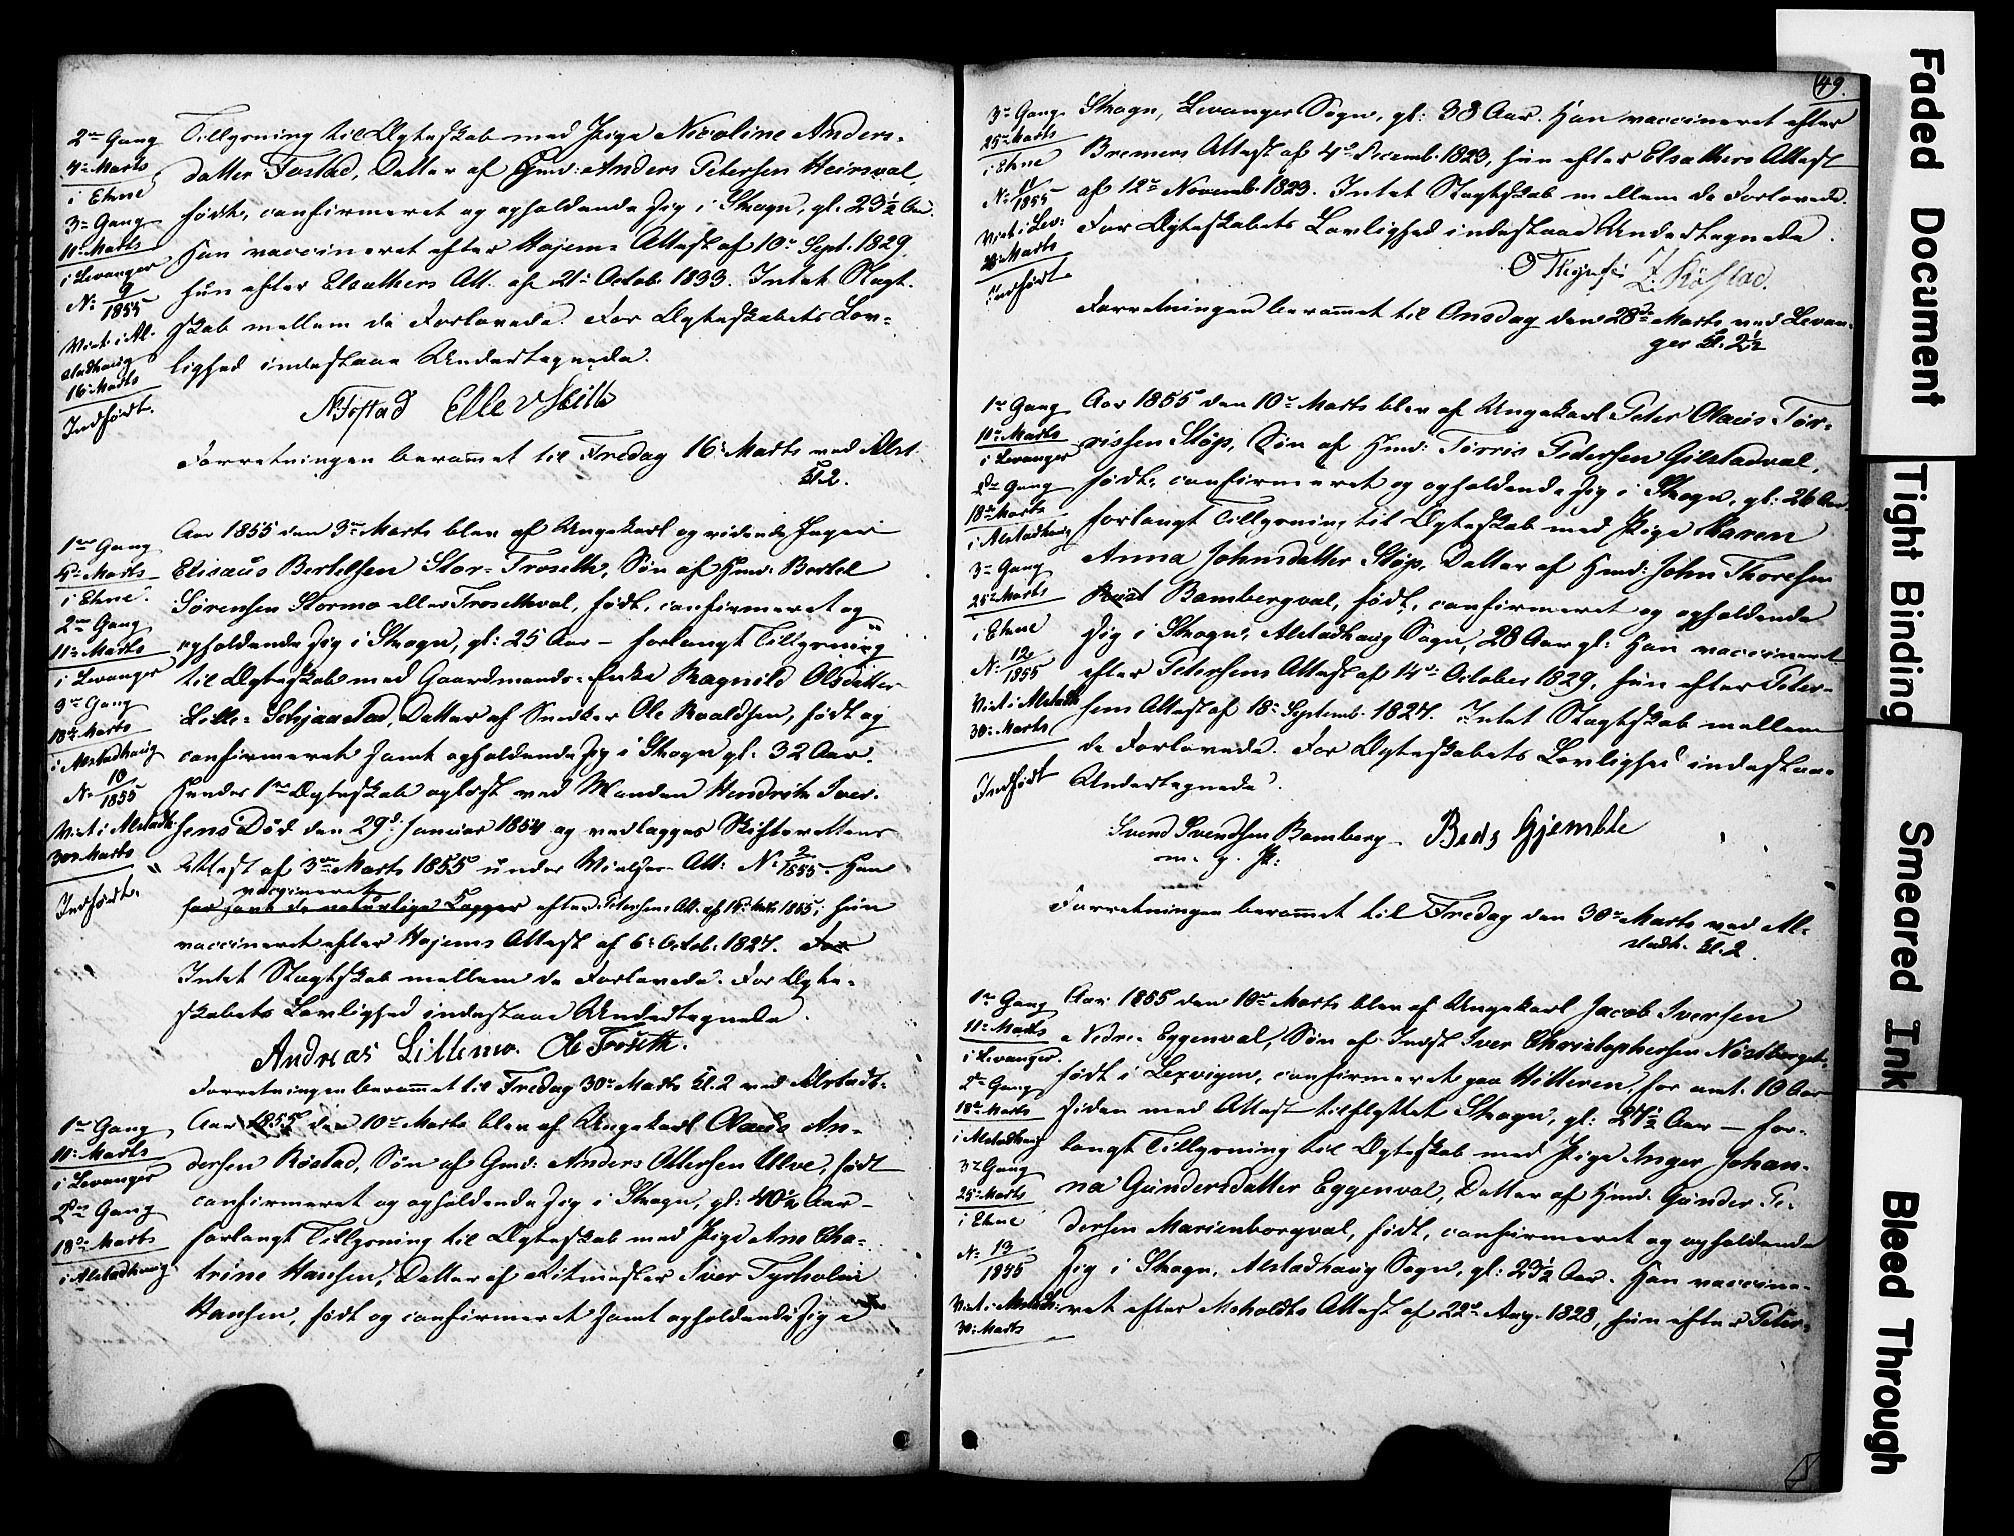 2den Gang
4de Marts
i Ekne
3die Gang
11te Marts
i Levanger
No 9/1855
Viet i Al-
stadhaug
16de Marts
Indført.
Tillysning til Ægteskab med Pige Nicoline Anders-
datter Fostad, Datter af Hmd: Anders Petersen Heirsval,
født, confirmeret og opholdende sig i Skogn, gl. 23½ Aar.
Han vaccineret efter Hojems Attest af 10de Sept. 1829.
hun efter Elsathers Att. af 21de Octob. 1833. Intet Slægt-
skab mellem de Forlovede. For Ægteskabets Lov-
lighed indestaae Undertegnede.
N Fostad
Forretningen berammet til Fredag 16de Marts ved Alst.
Kl. 2.
1ste Gang
4de Marts
i Ekne.
2den Gang
11te Marts
i Levanger
3die Gang
18de Marts
i Alstadhaug
No 10/1855
Viet i Alstadh.
30te Marts
Indført.
Aar 1855 den 3die Marts blev af Ungekarl og ridende Jæger
Elisæus Bertelsen Stor-Troseth, Søn af Hmd: Bertel
Sørensen Stormo eller Trosethval, født, confirmeret og
opholdende sig i Skogn, gl: 25 Aar – forlangt Tillysning
til Ægteskab med Gaardmands-Enke Ragnild Olsdatter
Lille-Schjærstad, Datter af Snedker Ole Roaldsen, født og
confirmeret samt opholdende sig i Skogn gl: 32 Aar.
Hendes 1ste Ægteskab opløst ved Manden Hendrik Iver-
sens Død den 29de Januar 1854 og vedlægges Skifterettens
Attest af 3die Marts 1855 under Vielses-Att: No 2/1855. Han
vaccineret
har havt de naturlige Kopper efter Petersens Att. af 15de ; hun
vaccineret efter Hojems Attest af 6te Octob. 1827. For
Intet Slægtskab mellem de Forlovede. For Ægte-
skabets Lovlighed indestaae Undertegnede.
Andreas Lillemo. Ole Troseth.
Forretningen berammet til Fredag 30te Marts Kl. 2 ved Alstadh.
1ste Gang
11te Marts
i Levanger
2den Gang
18de Marts
i Alstadhaug
Aar 1855 den 10de Marts blev af Ungekarl Olaus An-
dersen Røstad, Søn af Gmd: Anders Ottersen Ulve, født
confirmeret og opholdende sig i Skogn, gl: 40½ Aar –
forlangt Tillysning til Ægteskab med Pige Ane Cha-
trine Hansen, Datter af Ritmester Iver Tyrholm
Hansen, født og confirmeret samt opholdende sig i
49.
3die Gang
25de Marts
i Ekne
No 11/1855
Viet i Lev:
28de Marts
Indført
Skogn, Levanger Sogn, gl: 38 Aar. Han vaccineret efter
Bremers Attest af 4de Decemb. 1823, hun efter Elsathers Attest
af 12te Novemb. 1823. Intet Slægtskab mellem de Forlovede.
For Ægteskabets Lovlighed indestaae Undertegnede.
Røstad.
Forretningen berammet til Onsdag den 28de Marts ved Levan-
ger Kl. 2½
1ste Gang
11te Marts
i Levanger
2den Gang
18de Marts
i Alstadhaug
3die Gang
25de Marts
i Ekne
No 12/1855
Viet i Alstadh
30te Marts
Indført
Aar 1855 den 10de Marts blev af Ungekarl Peter Olaus Tør-
rissen Støp, Søn af Hmd: Tørris Pedersen Gilstadval,
født, confirmeret og opholdende sig i Skogn, gl: 26 Aar
forlangt Tillysning til Ægteskab med Pige Karen
Anna Johnsdatter Støp, Datter af Hmd: John Thoresen
Bambergval, født, confirmeret og opholdende
sig i Skogn, Alstadhaug Sogn, 28 Aar gl: Han vaccineret
efter Petersens Attest af 14de October 1829, hun efter Peter-
sens Attest af 18de Septemb. 1827. Intet Slægtskab mellem
de Forlovede. For Ægteskabets Lovlighed indestaae
Undertegnede.
Svend Svendsen Bamberg Gjemble
m. p. P:
Forretningen berammet til Fredag den 30te Marts ved Al-
stadh. Kl. 2.
1ste Gang
11te Marts
i Levanger.
2den Gang
18de Marts
i Alstadhaug
3die Gang
25de Marts
i Ekne
No 13/1855
Viet i Alstadh:
30te Marts
Aar 1855 den 10de Marts blev af Ungekarl Jacob Iversen
Nedre Eggenval, Søn af Indst Iver Christophersen
født i Lexvigen, confirmeret paa Hitteren, for omt. 10 Aar
siden med Attest tilflyttet Skogn, gl: 27½ Aar – for-
langt Tillysning til Ægteskab med Pige Inger Johan-
na Gundersdatter Eggenval, Datter af Hmd: Gunder Pe-
dersen Marienborgval, født, confirmeret og opholdende
sig i Skogn, Alstadhaug Sogn, gl: 23½ Aar. Han vaccine-
ret efter Attest af 22de Aug. 1828, hun efter Peter-
Faded Document
Tight Binding
Smeared Ink
Bleed Through